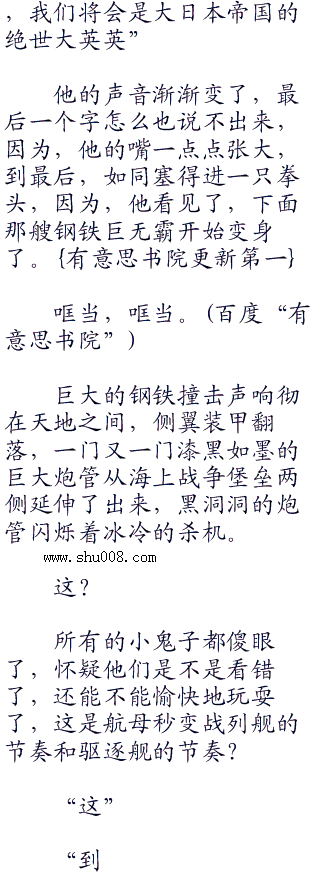 ，我们将会是大日本帝国的
绝世大英英”
他的声音渐渐变了，最
后一个字怎么也说不出来，
因为，他的嘴一点点张大，
到最后，如同塞得进一只拳
头，因为，他看见了，下面
那艘钢铁巨无霸开始变身
了。{有意思书院更新第一}
哐当，哐当。(百度“有
意思书院”)
巨大的钢铁撞击声响彻
在天地之间，侧翼装甲翻
落，一门又一门漆黑如墨的
巨大炮管从海上战争堡垒两
侧延伸了出来，黑洞洞的炮
管闪烁着冰冷的杀机。
www.shu008.com
这？
所有的小鬼子都傻眼
了，怀疑他们是不是看错
了，还能不能愉快地玩耍
了，这是航母秒变战列舰的
节奏和驱逐舰的节奏？
“这”
“到